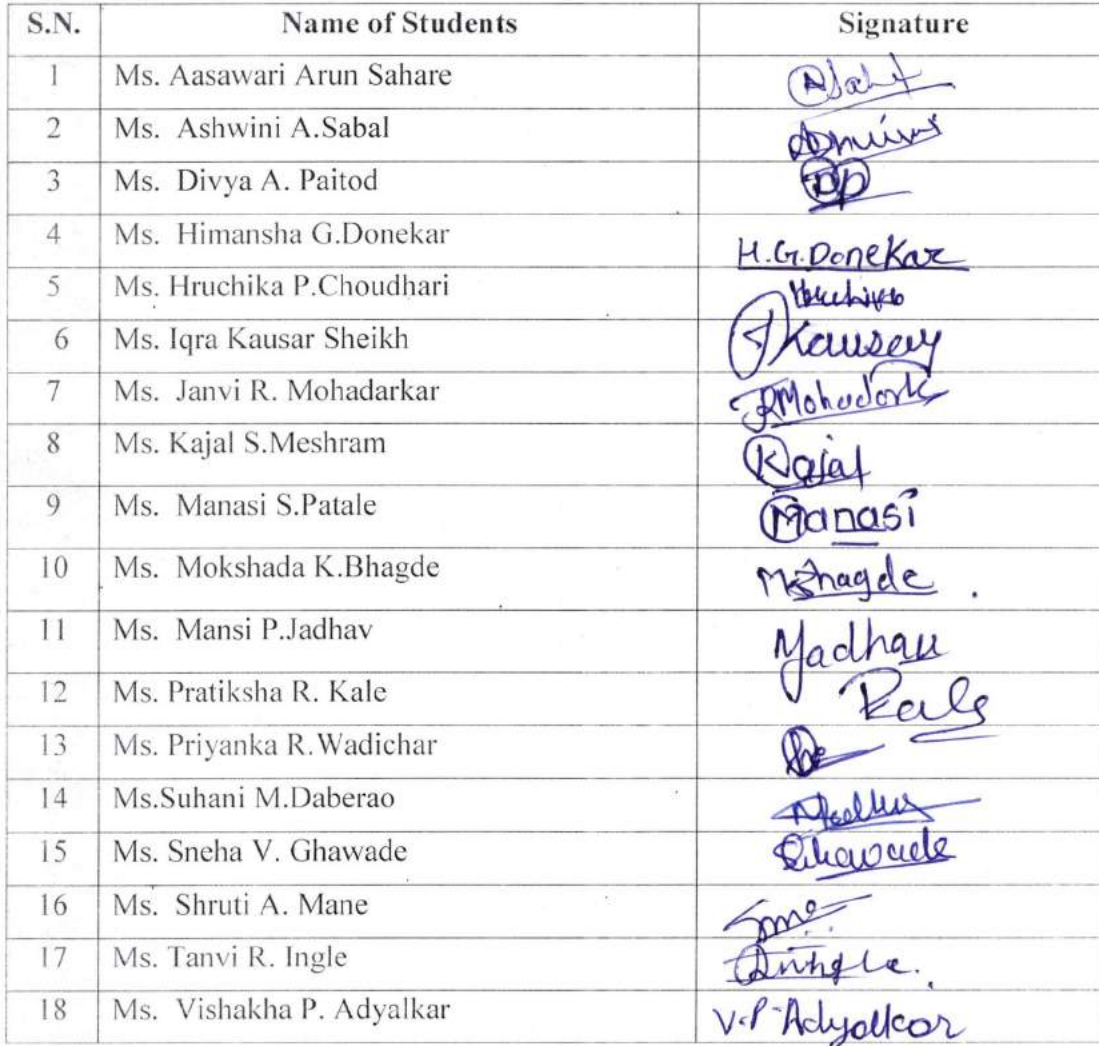 S.N. Name of Students Signature
1 Ms. Aasawari Arun Sahare
2 Ms. Ashwini A.Sabal
3 Ms. Divya A. Paitod DP
4 Ms. Himansha G.Donekar H.G.Donekar
5 Ms. Hruchika P.Choudhari
6 Ms. Iqra Kausar Sheikh Kausar
7 Ms. Janvi R. Mohadarkar
8 Ms. Kajal S.Meshram Kajal
9 Ms. Manasi S.Patale Manasi
10 Ms. Mokshada K.Bhagde
11 Ms. Mansi P.Jadhav
12 Ms. Pratiksha R. Kale
13 Ms. Priyanka R.Wadichar
14 Ms.Suhani M.Daberao
15 Ms. Sneha V. Ghawade
16 Ms. Shruti A. Mane
17 Ms. Tanvi R. Ingle
18 Ms. Vishakha P. Adyalkar V.P.Adyalkar